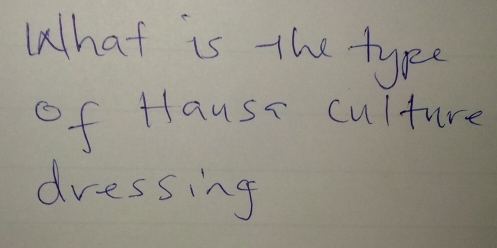 What is the type
of Hausa culture
dressing